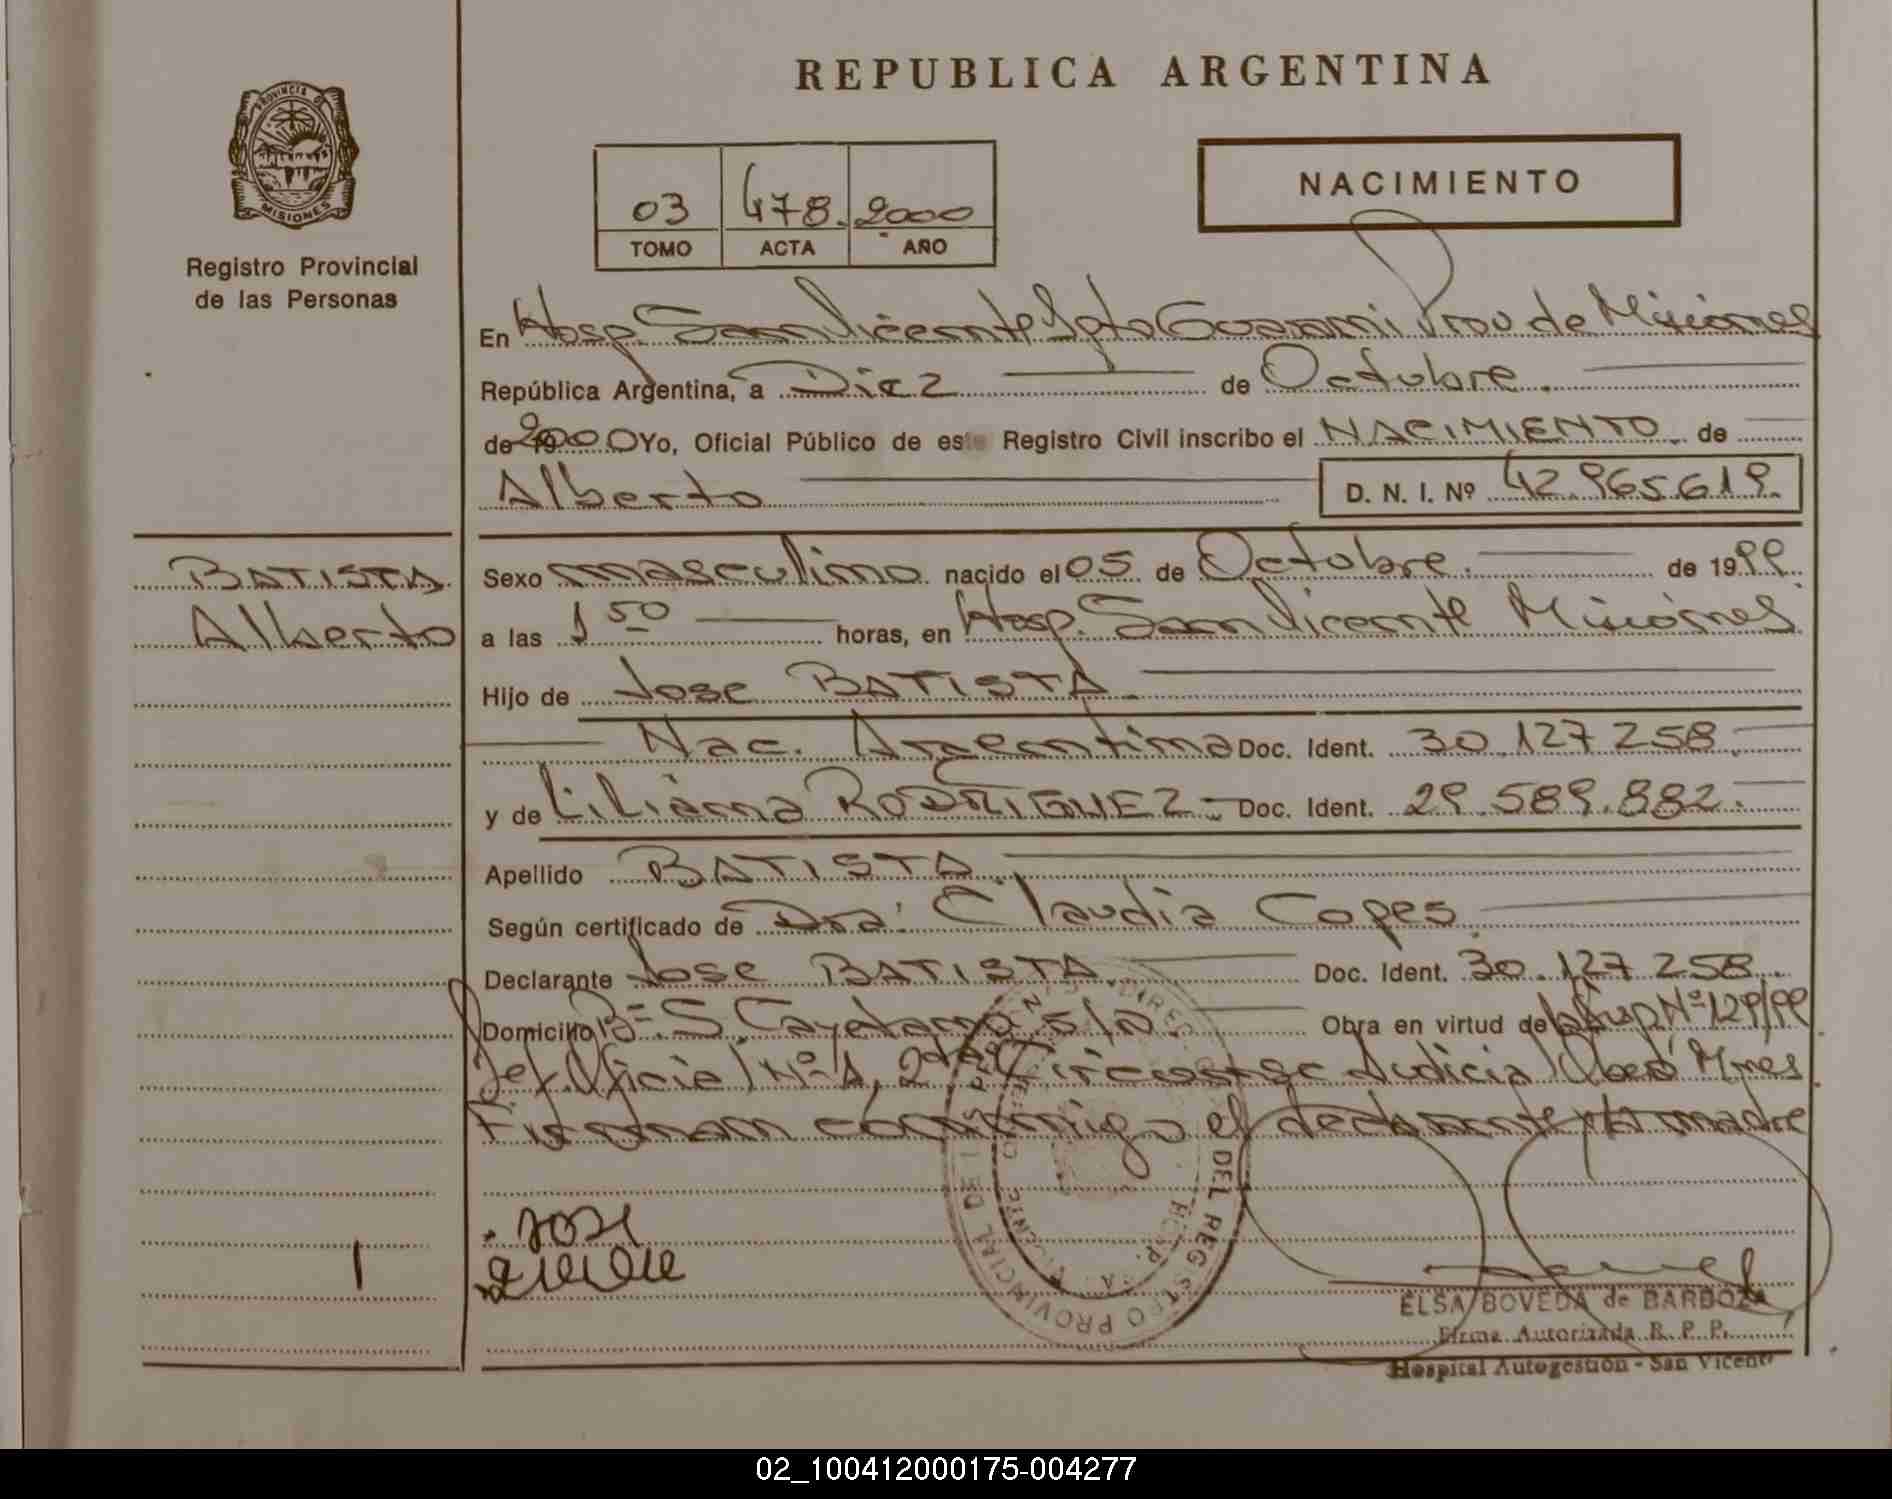 REPUBLICA ARGENTINA
PROVINCIA D
MISIONES
Registro Provincial
de las Personas
03 478. 2000
TOMO ACTA AÑO
NACIMIENTO
En Hosp. San Vicente Dpto Guarani Prov de Misiones
República Argentina, a Diez de Octubre.
de 19 2000 Yo, Oficial Público de este Registro Civil inscribo el NACIMIENTO. de
Alberto D. N. I. Nº 42.965.619.
BATISTA
Alberto
Sexo masculino nacido el 05 de Octubre. de 1999.
a las 1 50 horas, en Hosp. San Vicente Misiones.
Hijo de Jose BATISTA.
Nac. Argentina Doc. Ident. 30.127.258.
y de Liliana RODRIGUEZ - Doc. Ident. 29.589.882.
Apellido BATISTA.
Según certificado de Dra. Claudia Copes.
Declarante Jose BATISTA. Doc. Ident. 30.127.258.
Domicilio Bº S. Cayetano s/n. Obra en virtud de Disp Nº 129/99
Def. Oficial Nº 1, 2da Circunsc Judicial Oberá Mnes.
Firman conmigo el declarante y la madre
JOSE
1
DEL REGISTRO PROVINCIAL DE LAS PERSONAS
HOSP. SAN VICENTE
ELSA BOVEDA de BARBOZA
Firma Autorizada R. P. P.
Hospital Autogestión - San Vicente
02_100412000175-004277